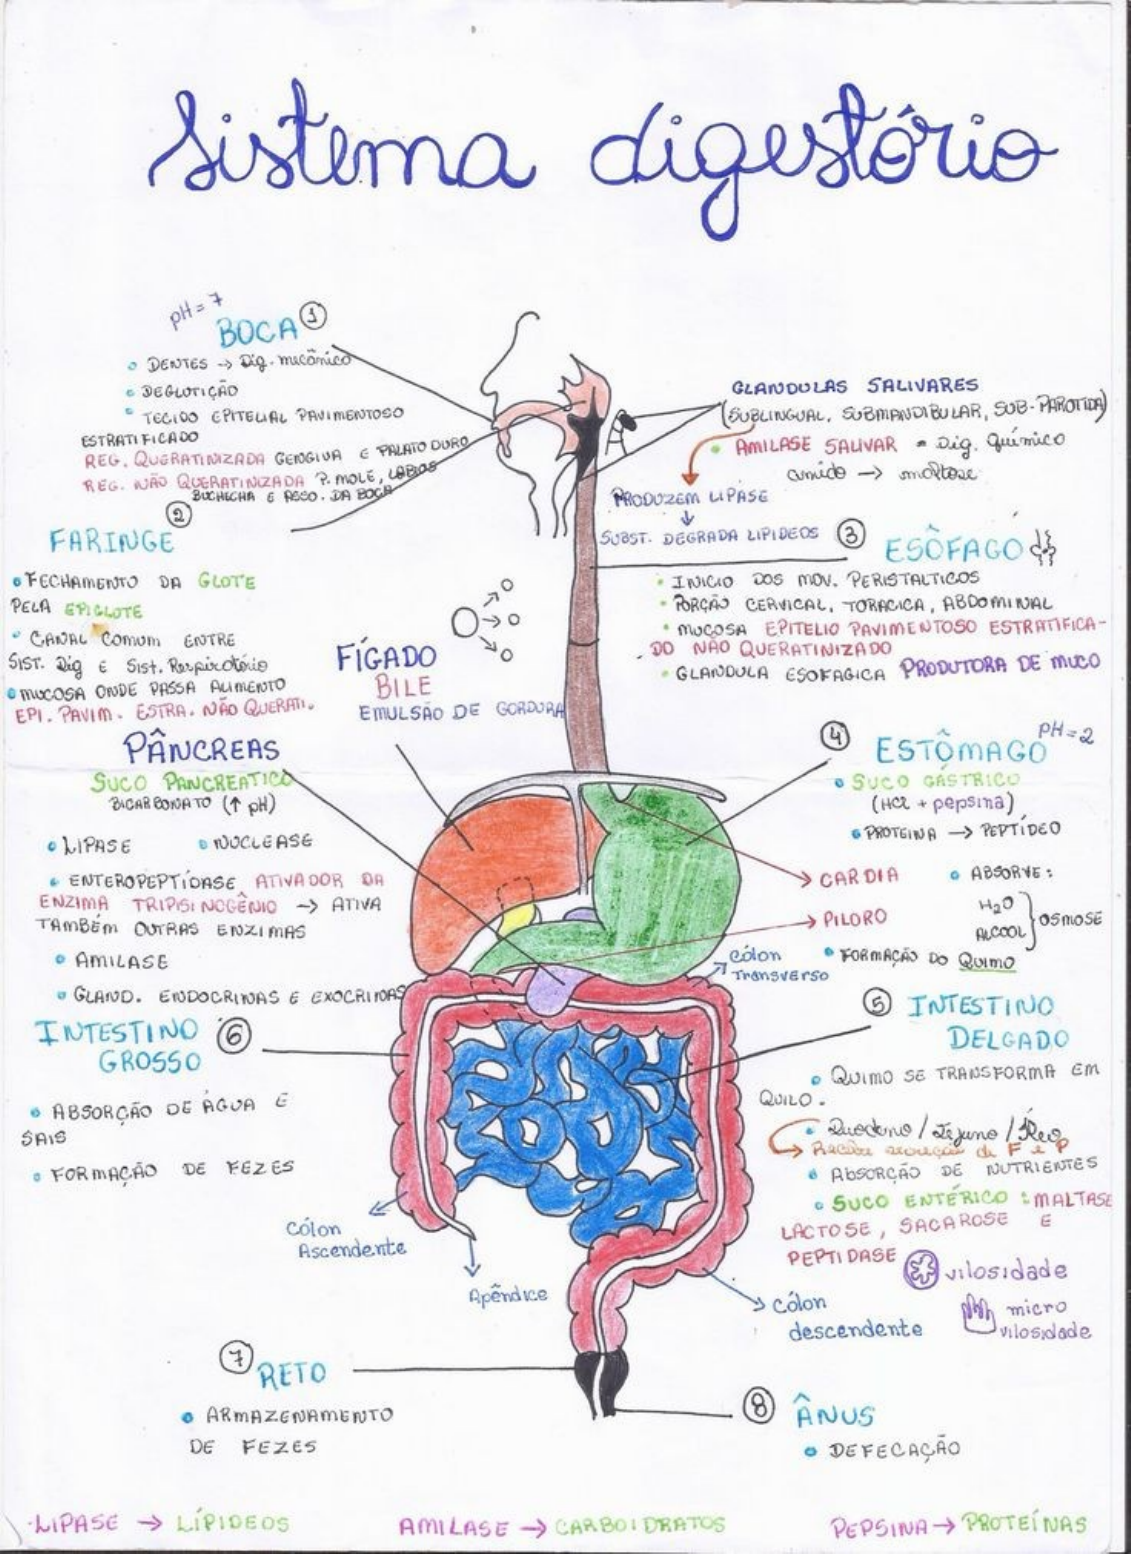 Sistema digestório
pH = 7
BOCA ①
DENTES → Dig. mecânico
DEGLUTIÇÃO
TECIDO EPITELIAL PAVIMENTOSO
ESTRATIFICADO
REG. QUERATINIZADA GENGIVA E PALATO DURO
REG. NÃO QUERATINIZADA P. MOLE, LABIOS
BUCHECHA E ASSO. DA BOCA
GLANDULAS SALIVARES
(SUBLINGUAL, SUBMANDIBULAR, SUB-PAROTIDA)
AMILASE SALIVAR = Dig. químico
amido → maltose
PRODUZEM LIPASE
↓
SUBST. DEGRADA LIPIDEOS
②
FARINGE
FECHAMENTO DA GLOTE
PELA EPIGLOTE
CANAL COMUM ENTRE
SIST. Dig E SIST. Respiratório
MUCOSA ONDE PASSA ALIMENTO
EPI. PAVIM. ESTRA. NÃO QUERATI.
③ ESÔFAGO
INICIO DOS MOV. PERISTALTICOS
PORÇÃO CERVICAL, TORACICA, ABDOMINAL
MUCOSA EPITELIO PAVIMENTOSO ESTRATIFICA-
DO NÃO QUERATINIZADO
GLANDULA ESOFAGICA PRODUTORA DE MUCO
FÍGADO
BILE
EMULSÃO DE GORDURA
PÂNCREAS
SUCO PANCREATICO
BICARBONATO (↑ pH)
LIPASE
NUCLEASE
ENTEROPEPTÍDASE ATIVADOR DA
ENZIMA TRIPISINOGÊNIO → ATIVA
TAMBÉM OUTRAS ENZIMAS
AMILASE
GLAND. ENDOCRINAS E EXOCRINAS
④ ESTÔMAGO
PH = 2
SUCO GÁSTRICO
(HCl + pepsina)
PROTEINA → PEPTÍDEO
CARDIA
PILORO
ABSORVE:
H₂O
ALCOOL
OSMOSE
FORMAÇÃO DO QUIMO
cólon
Transverso
⑤ INTESTINO
DELGADO
QUIMO SE TRANSFORMA EM
QUILO.
Duodeno / Jejuno / Íleo
Recebe secreção de F e P
ABSORÇÃO DE NUTRIENTES
SUCO ENTÉRICO : MALTASE
LACTOSE, SACAROSE E
PEPTIDASE
vilosidade
micro
vilosidade
INTESTINO ⑥
GROSSO
ABSORÇÃO DE ÁGUA E
SAIS
FORMAÇÃO DE FEZES
Cólon
Ascendente
Apêndice
cólon
descendente
⑦ RETO
ARMAZENAMENTO
DE FEZES
⑧ ÂNUS
DEFECAÇÃO
LIPASE → LÍPIDEOS
AMILASE → CARBOIDRATOS
PEPSINA → PROTEÍNAS